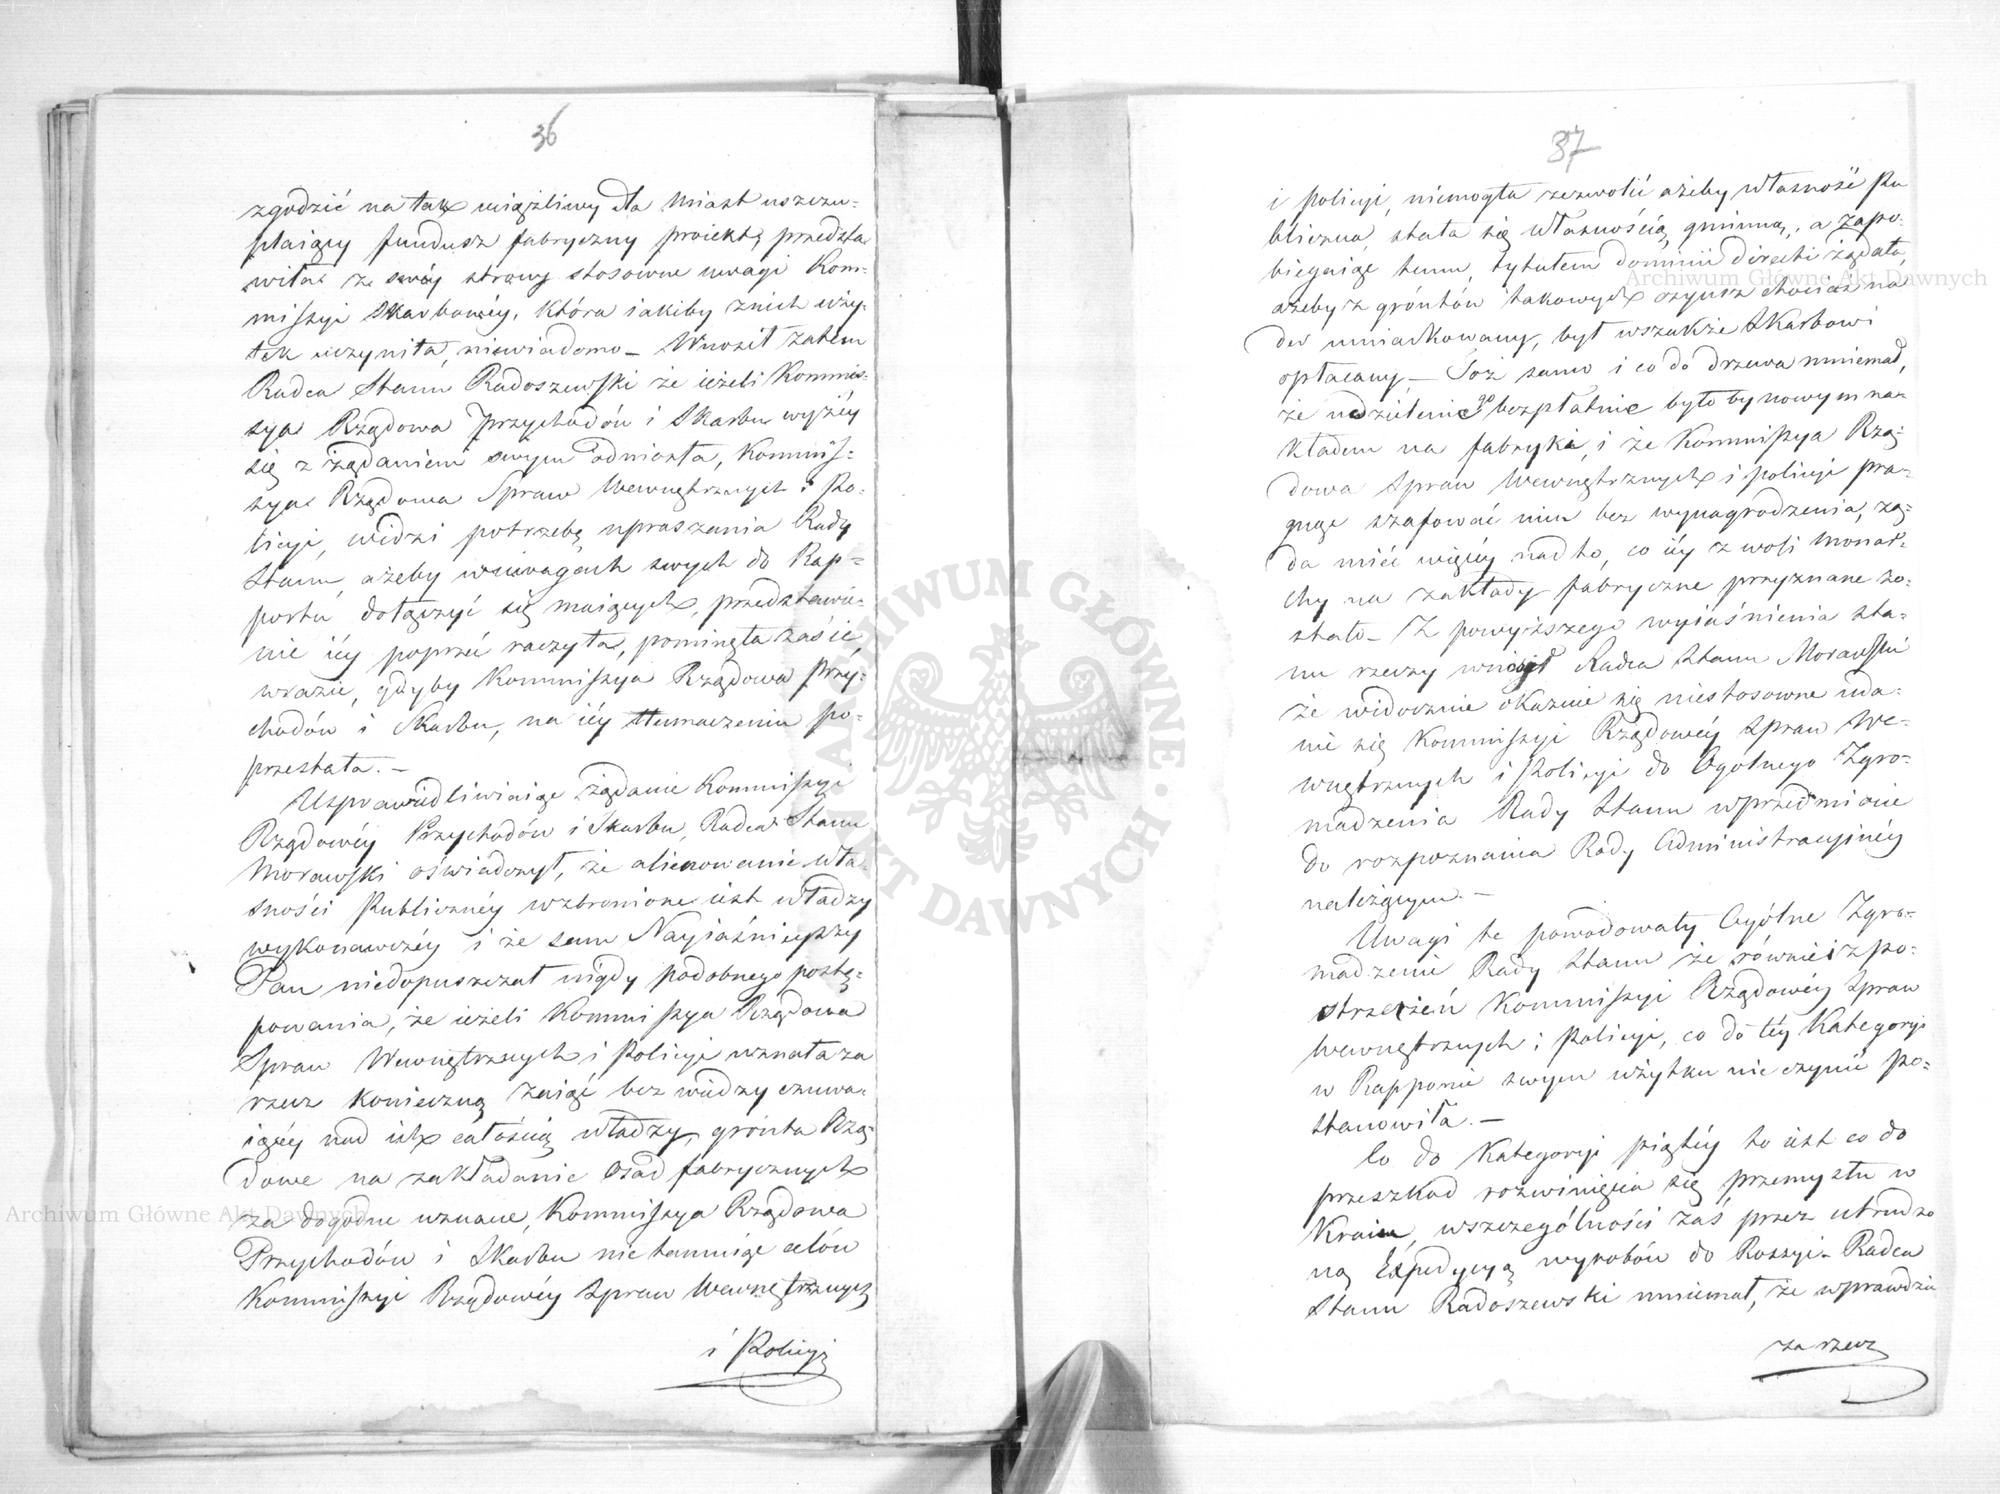 36
zgodzić na tak uciążliwy dla Miast uszczu-
plaiący fundusz fabryczny proiekt, przedsta
wiła ze swéy strony stosowne uwagi Kom-
missyi Skarbowéy, która iakiby z nich uży-
tek uczyniła, niewiadomo – Wnosił zatem
Radca Stanu Radoszewski że ieżeli Kommis-
sya Rządowa Przychodów i Skarbu wyżéy
się z żądaniem swym odniosła, Kommis-
sya Rządowa Spraw Wewnętrznych i Po-
licyi, widzi potrzebę upraszania Rady
Stanu, ażeby w uwagach swych do Rap-
portu dołączyć się maiących, przedstawie-
nie iéy poprzéć raczyła, pominęła zaś ie
wrazie, gdyby Kommissya Rządowa Przy-
chodów i Skarbu, na iéy tłumaczeniu po-
przestała. –
Usprawiedliwiaiąc żądanie Kommissyi
Rządowéy Przychodów i Skarbu, Radca Stanu
Morawski oświadczył, że alienowanie wła-
sności Publicznéy wzbronione iest władzy
wykonawczéy i że sam Nayiaśnieyszy
Pan niedopuszczał nigdy podobnego postę-
powania, że ieżeli Kommissya Rządowa
Spraw Wewnętrznych i Policyi uznała za
rzecz konieczną zaiąć bez wiedzy czuwa-
iącéy nad ich całością władzy, grónta Rzą-
dowe na zakładanie osad fabrycznych
za dogodne uznane, Kommissya Rządowa
Przychodów i Skarbu nie tamuiąc celów
Kommissyi Rządowéy Spraw Wewnętrznych
i Policyi
37
i Policyi, niemogła zezwolić ażeby własność Pu
bliczna, stała się własnością gminną, a zapo-
biegaiąc temu, tytułem dominii directi żądała,
ażeby z gróntów takowych czynsz chociaż na
der umiarkowany, był wszakże Skarbowi
opłacany – Toż samo i co do drzewa mniemał,
że udzielenie go bezpłatnie było by nowym na-
kładem na fabryki, i że Kommissya Rzą-
dowa Spraw Wewnętrznych i Policyi pra-
gnąc szafować nim bez wynagrodzenia, żą-
da mieć więcéy nad to, co iéy z woli Monar-
chy na zakłady fabryczne przyznane zo-
stało – Z powyższego wyiaśnienia sta-
nu rzeczy wniósł Radca Stanu Morawski
że widocznie okazuie się niestosowne uda-
nie się Kommissyi Rządowéy Spraw We-
wnętrznych i Policyi do Ogólnego Zgro-
madzenia Rady Stanu w przedmiocie
do rozpoznania Rady Administracyinéy
należącym. –
Uwagi te powodowały Ogólne Zgro-
madzenie Rady Stanu że również z po-
strzeżeń Kommissyi Rządowéy Spraw
Wewnętrznych i Policyi, co do téy Kategoryi
w Rapporcie swym użytku nie czynić po-
stanowiła. –
Co do Kategoryi piątéy to iest co do
przeszkod rozwinięcia się przemysłu w
Kraiu, wszczególności zaś przez utrudzo
ną Expedycyą wyrobów do Rossyi – Radca
Stanu Radoszewski mniemał, że wprawdzie
za rzecz
Archiwum Główne Akt Dawnych
Archiwum Główne Akt Dawnych
ARCHIWUM GŁÓWNE AKT DAWNYCH